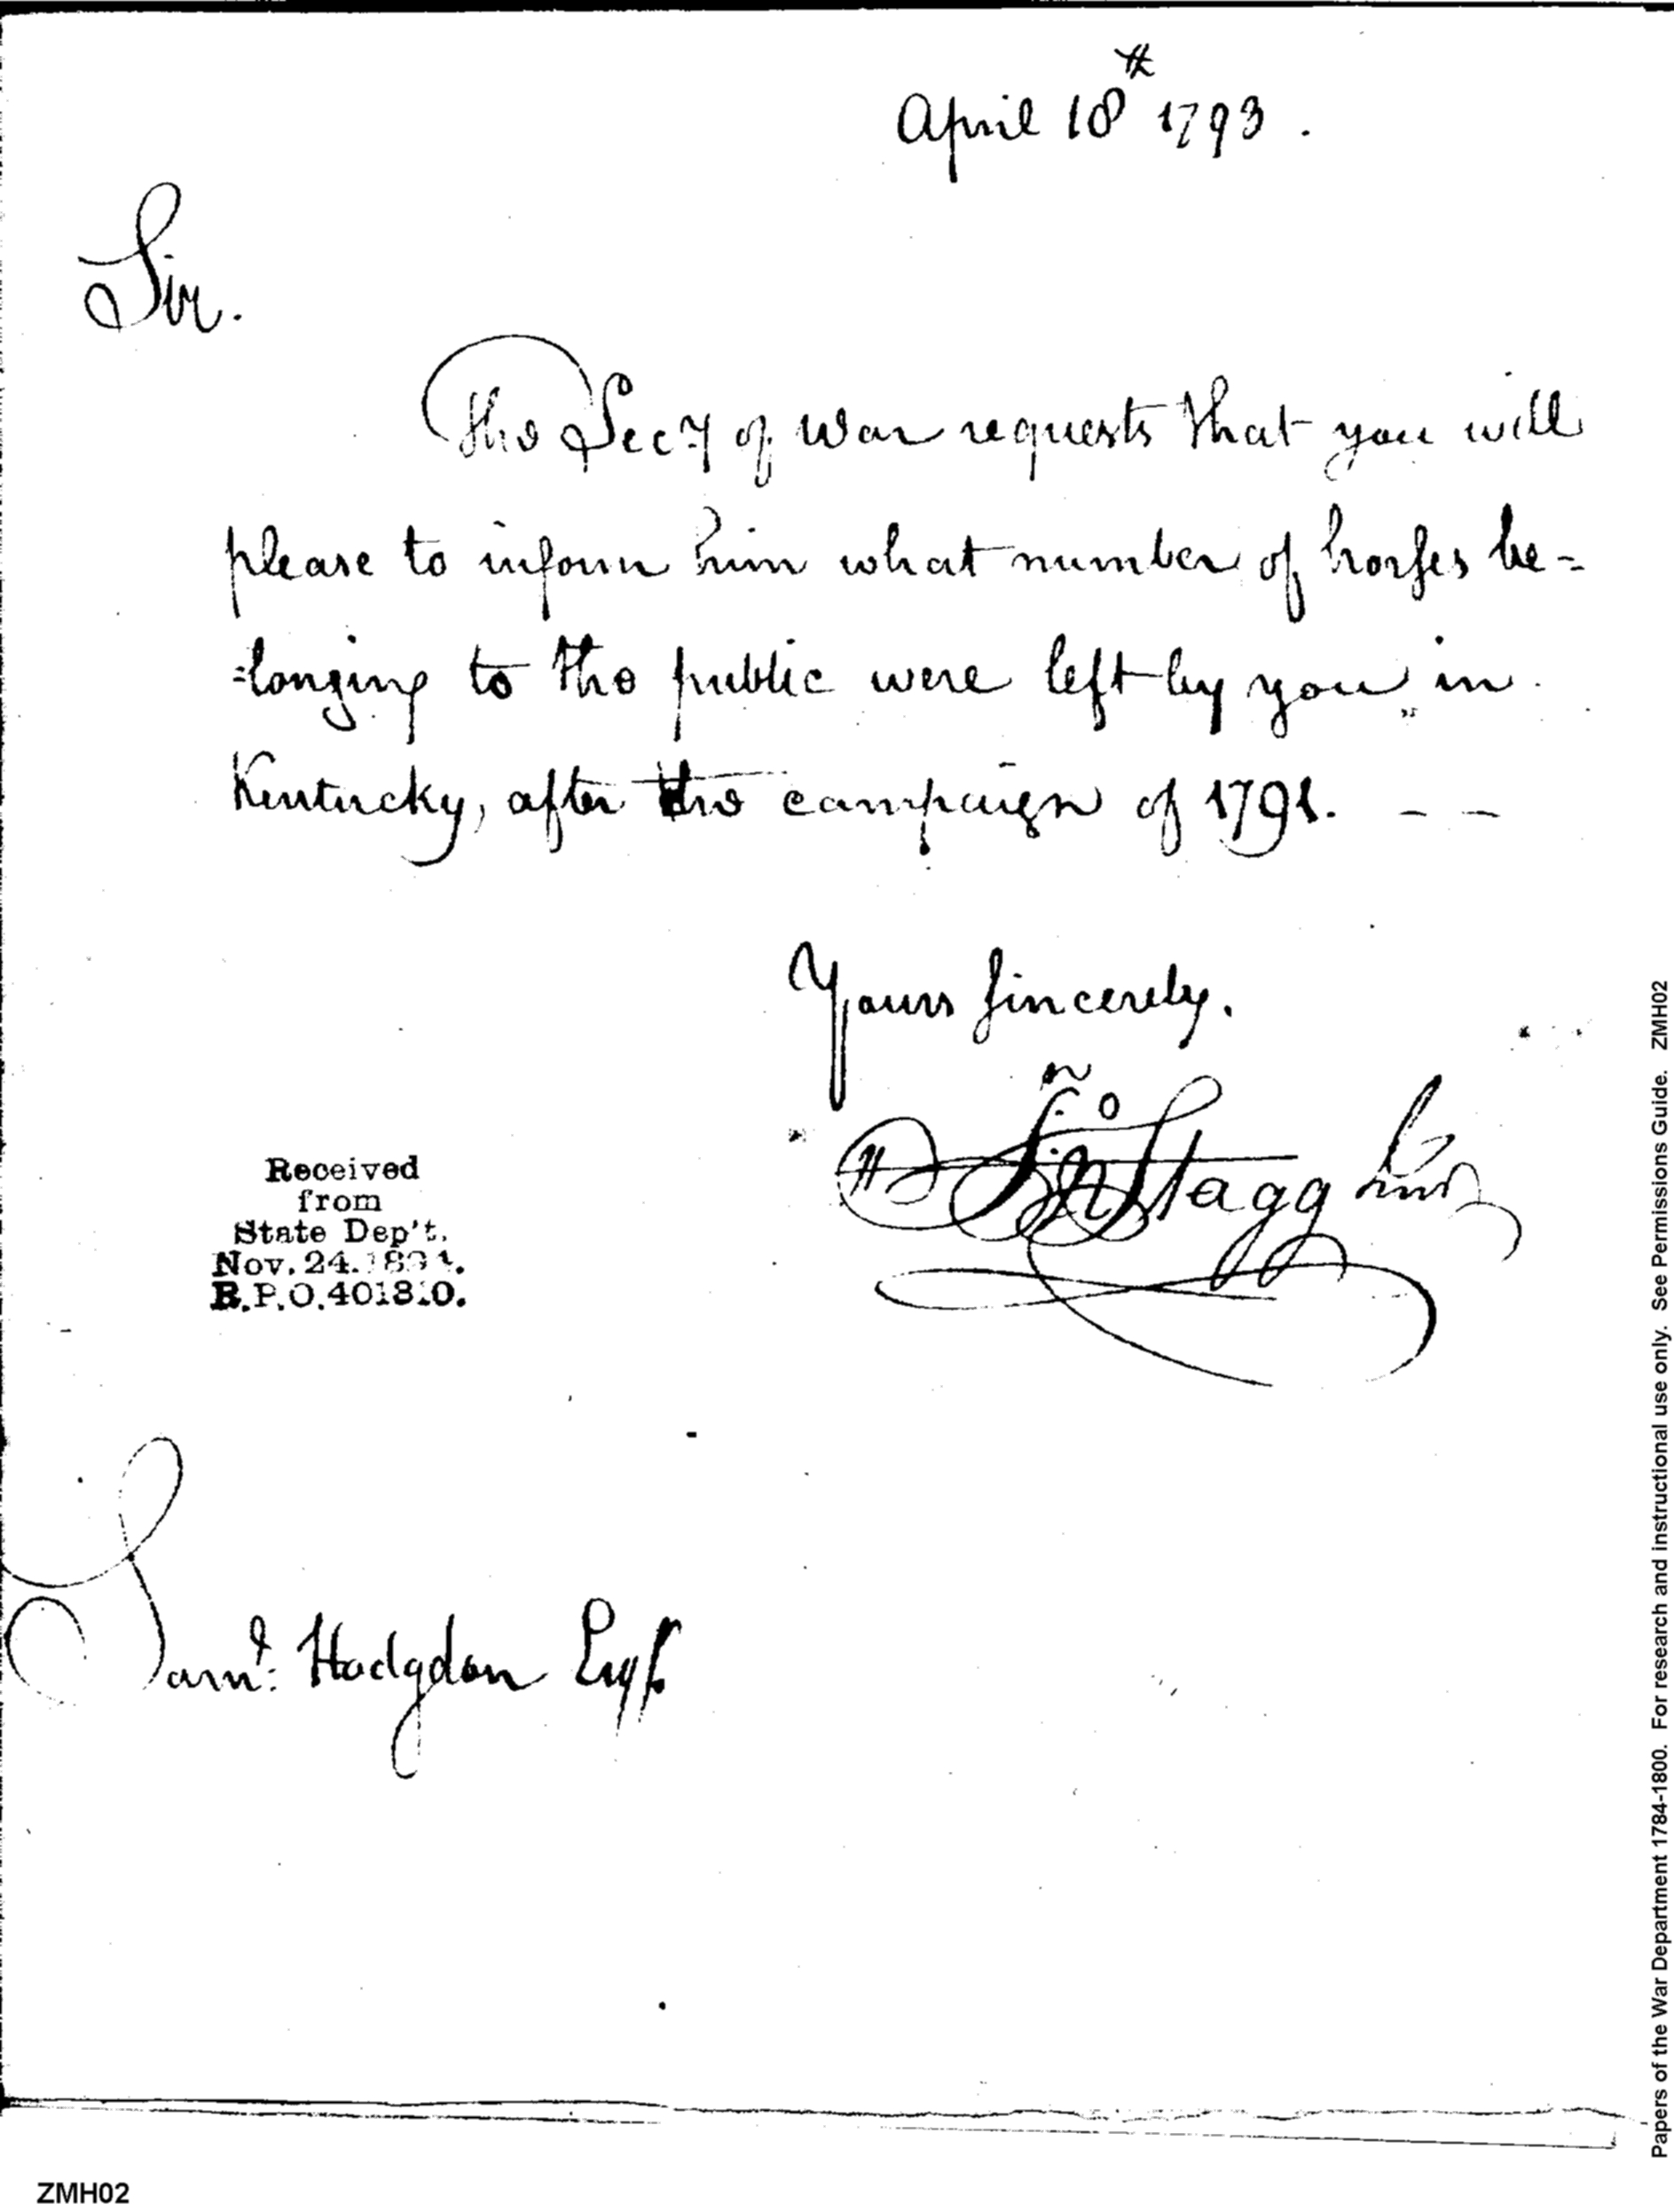 April 18th 1793.
Sir.
The Secy of War requests that you will
please to inform him what number of horses be=
=longing to the public were left by you in
Kentucky, after the campaign of 1791. – –
Yours sincerely.
Jno Stagg Junr
Received
from
State Dep't.
Nov. 24. 1894.
B.P.O. 401310.
Saml: Hodgdon Esqr
Papers of the War Department 1784-1800. For research and instructional use only. See Permissions Guide. ZMH02
ZMH02